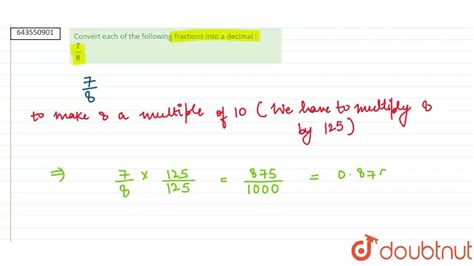 643550901
Convert each of the following fractions into a decimal :
7
8
7
8
to make 8 a multiple of 10 (We have to multiply 8
by 125)
⇒ 7/8 × 125/125 = 875/1000 = 0.875
doubtnut